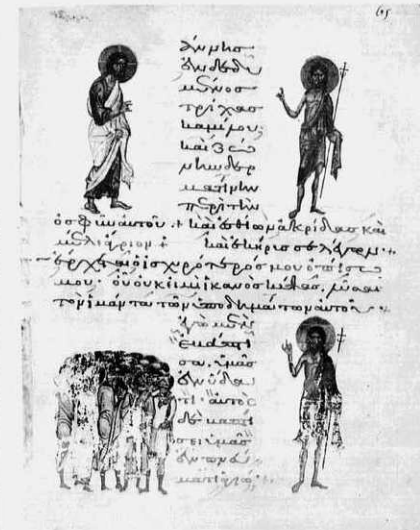 άννησ
ἐνδεδυ
μένος
τρίχας
καμήλου·
καὶ ζώ
νην δερ
ματίνην
περὶ τὴν
ὀσφὺν αὐτοῦ· καὶ ἐσθίων ἀκρίδας καὶ
μέλι ἄγριον· καὶ ἐκήρυσσε λέγων·
ἔρχεται ὁ ἰσχυρότερός μου ὀπίσω
μου· οὗ οὐκ εἰμὶ ἱκανὸς κύψας λῦσαι
τὸν ἱμάντα τῶν ὑποδημάτων αὐτοῦ·
ἐγὼ μὲν
ἐβάπτι
σα ὑμᾶς
ἐν ὕδα
τι· αὐτὸς
δὲ βαπτί
σει ὑμᾶς
ἐν πνεύ
ματι ἁγίω